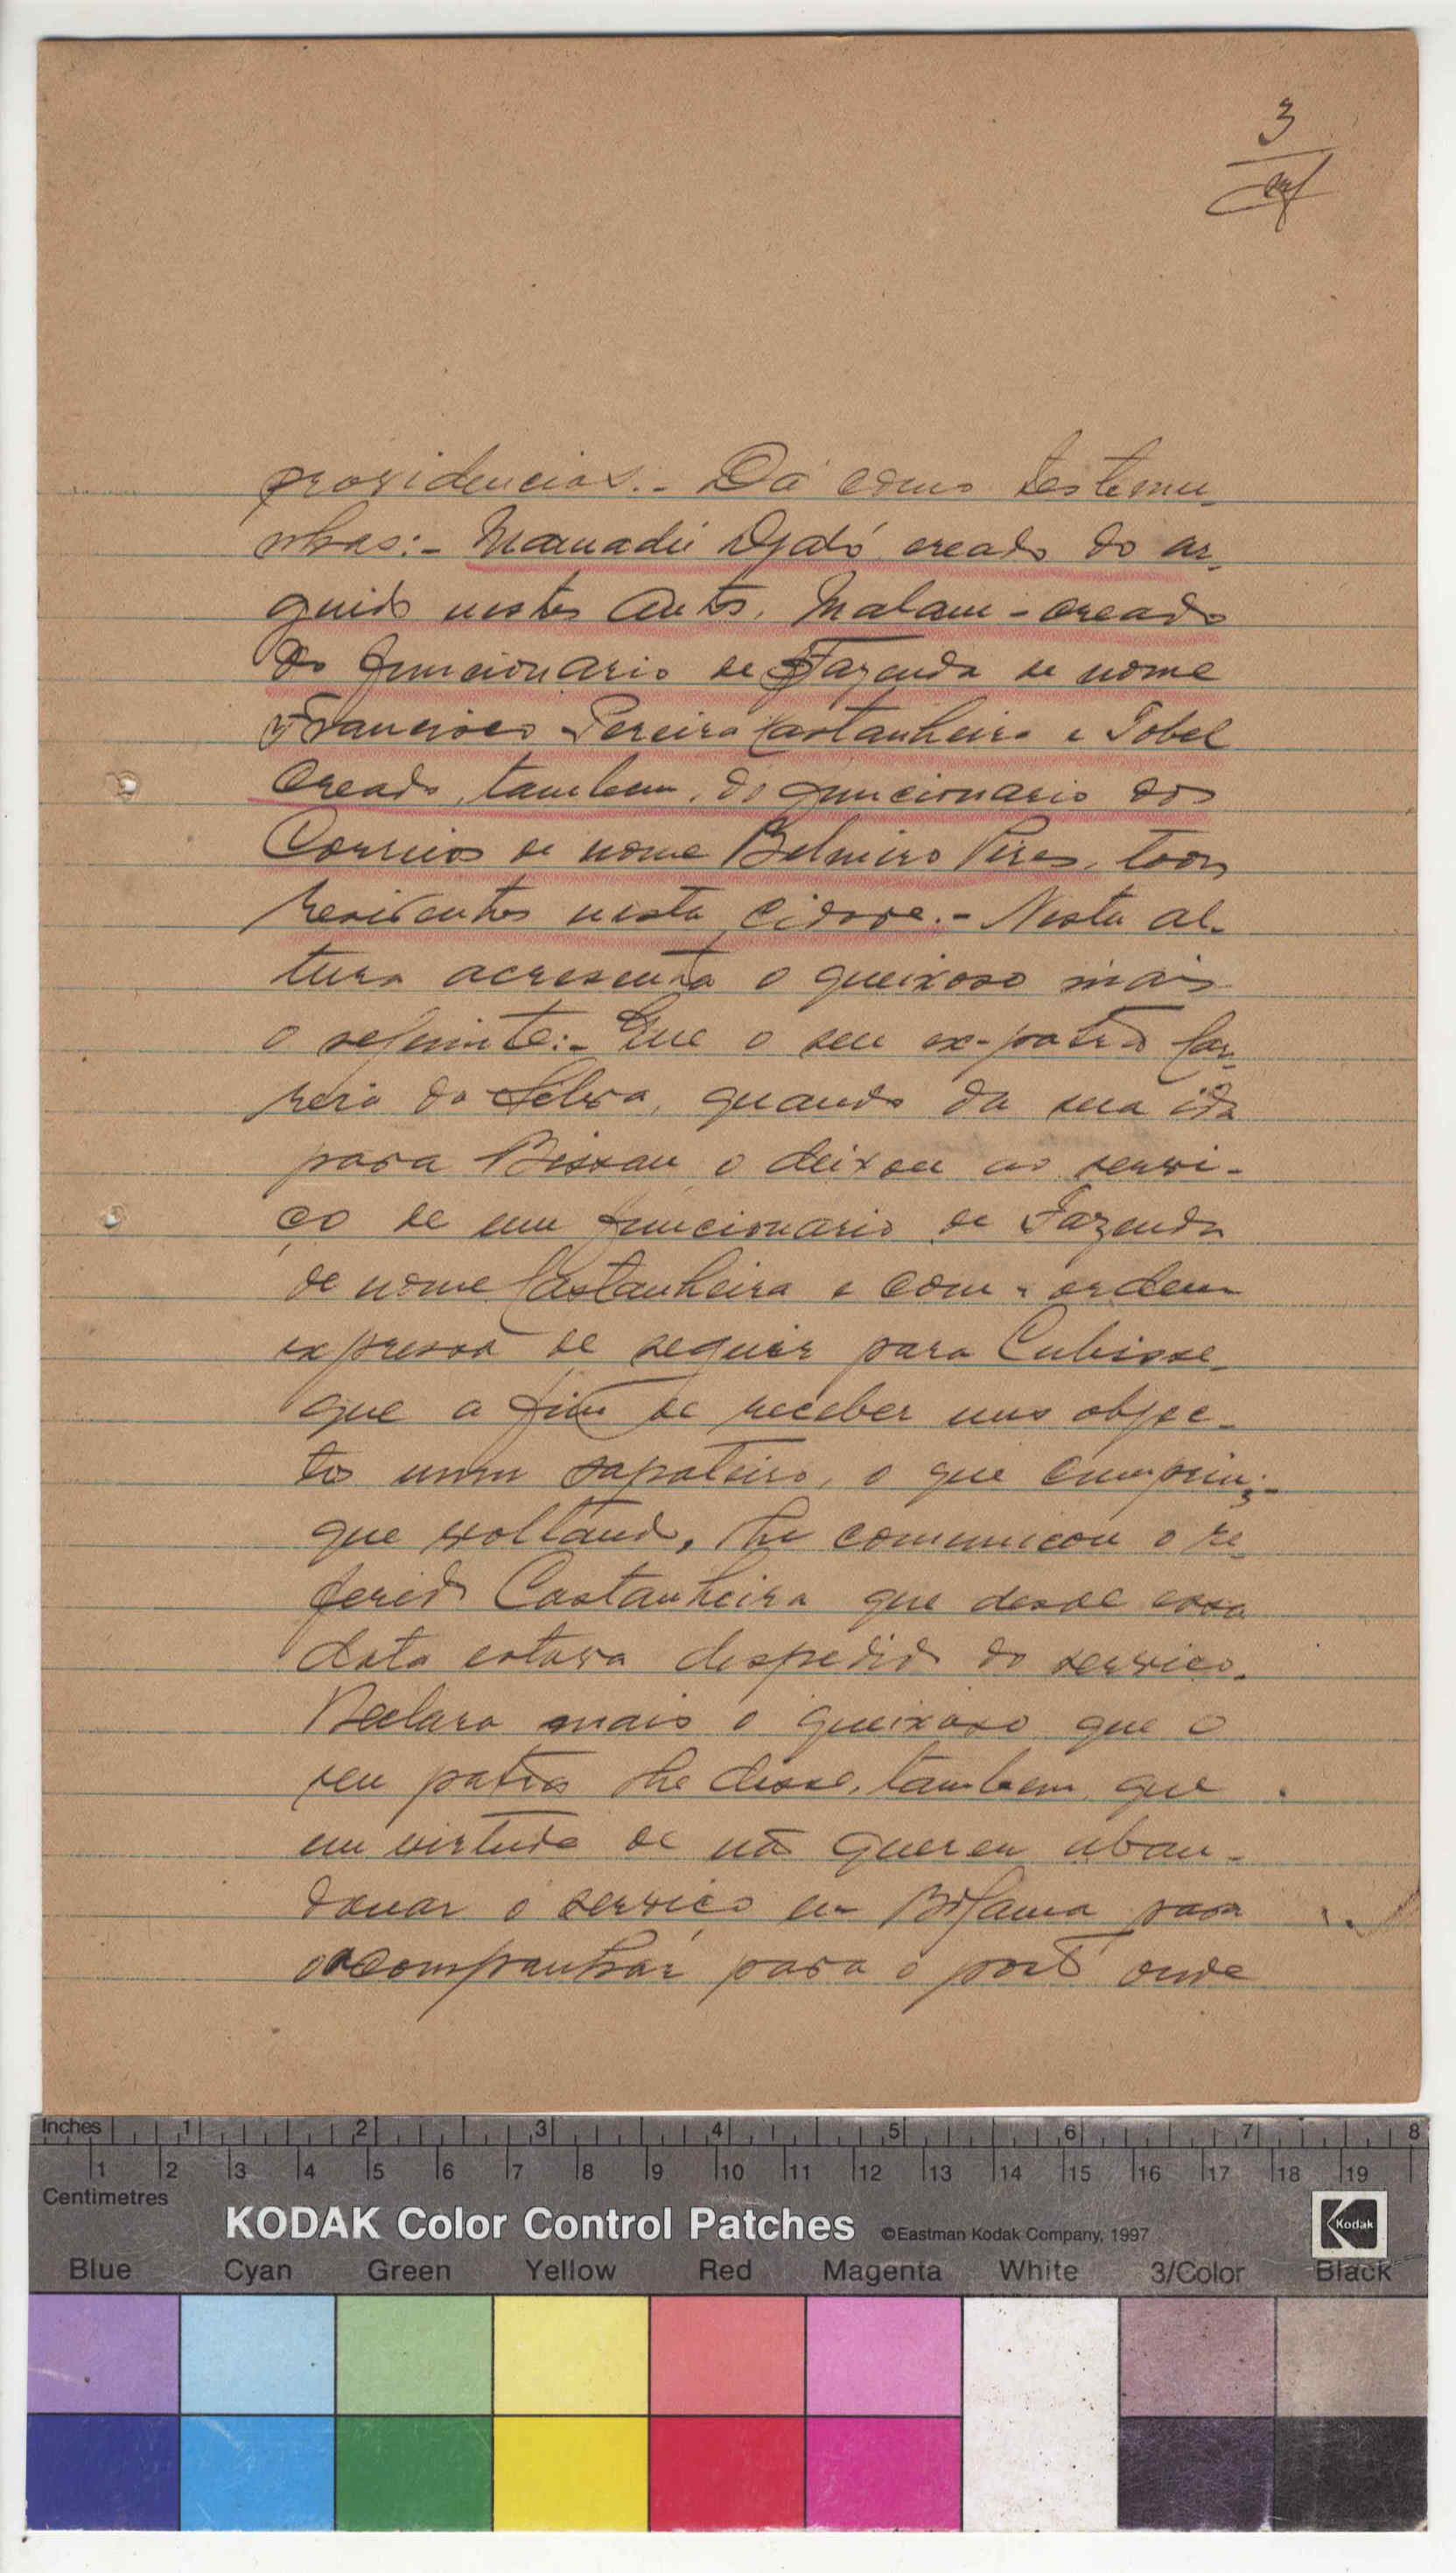 3
providencias.- Dá como testemu-
nhas:- Mamadú Djaló, creado do ar-
guido nestes autos, Malam - creado
do funcionario de Fazenda de nome
Francisco Pereira Castanheira e Tobel
creado, tambem, do funcionario dos
Correios de nome Belmiro Pires, todos
residentes nesta cidade.- Nesta al-
tura acrescenta o queixoso mais
o seguinte:- Que o seu ex-patrão Cor-
reia da Silva, quando da sua ida
para Bissau o deixou ao servi-
ço de um funcionario de Fazenda
de nome Castanheira e com a ordem
expressa de seguir para Cubisse-
que a fim de receber uns objec-
tos num sapateiro, o que cumpriu;-
que voltando, lhe comunicou o re-
ferido Castanheira que desde essa
data estava despedido do serviço.
Declara mais o queixoso que o
seu patrão lhe disse, tambem, que
em virtude de não querer aban-
donar o serviço em Bolama para
o acompanhar para o pôsto onde
Inches 1 2 3 4 5 6 7 8
1 2 3 4 5 6 7 8 9 10 11 12 13 14 15 16 17 18 19
Centimetres
KODAK Color Control Patches ©Eastman Kodak Company, 1997 Kodak
Blue Cyan Green Yellow Red Magenta White 3/Color Black